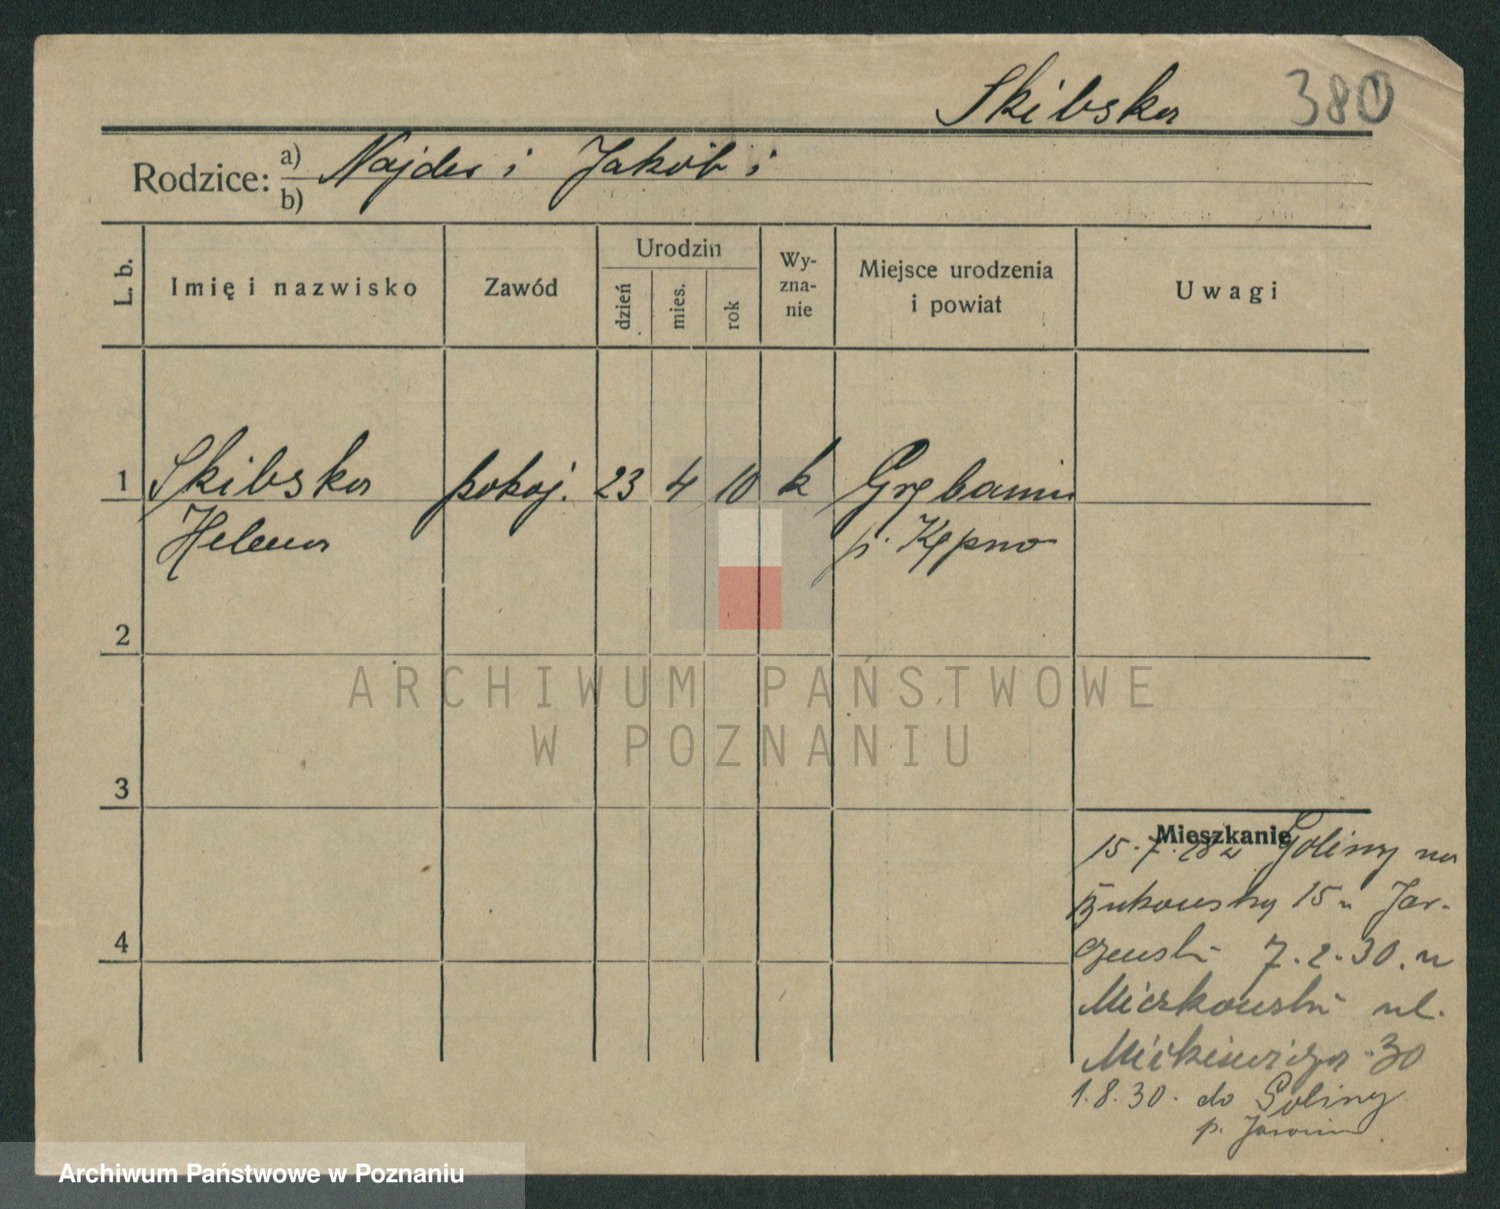 Skibska 380
Rodzice: a) Najder i Jakób i
b)
L. b. Imię i nazwisko Zawód Urodzin dzień mies. rok Wyznanie Miejsce urodzenia i powiat Uwagi
1 Skibska pokoj. 23 4 10 k Grębanin
Helena p. Kępno
2
3
4
Mieszkanie
15.7. z Goliny na
Bukowską 15 u Jar-
czewski 7.2.30. u
Miczkowski ul.
Mickiewicza 30
1.8.30. do Goliny
p. Jarocin
ARCHIWUM PAŃSTWOWE
W POZNANIU
Archiwum Państwowe w Poznaniu